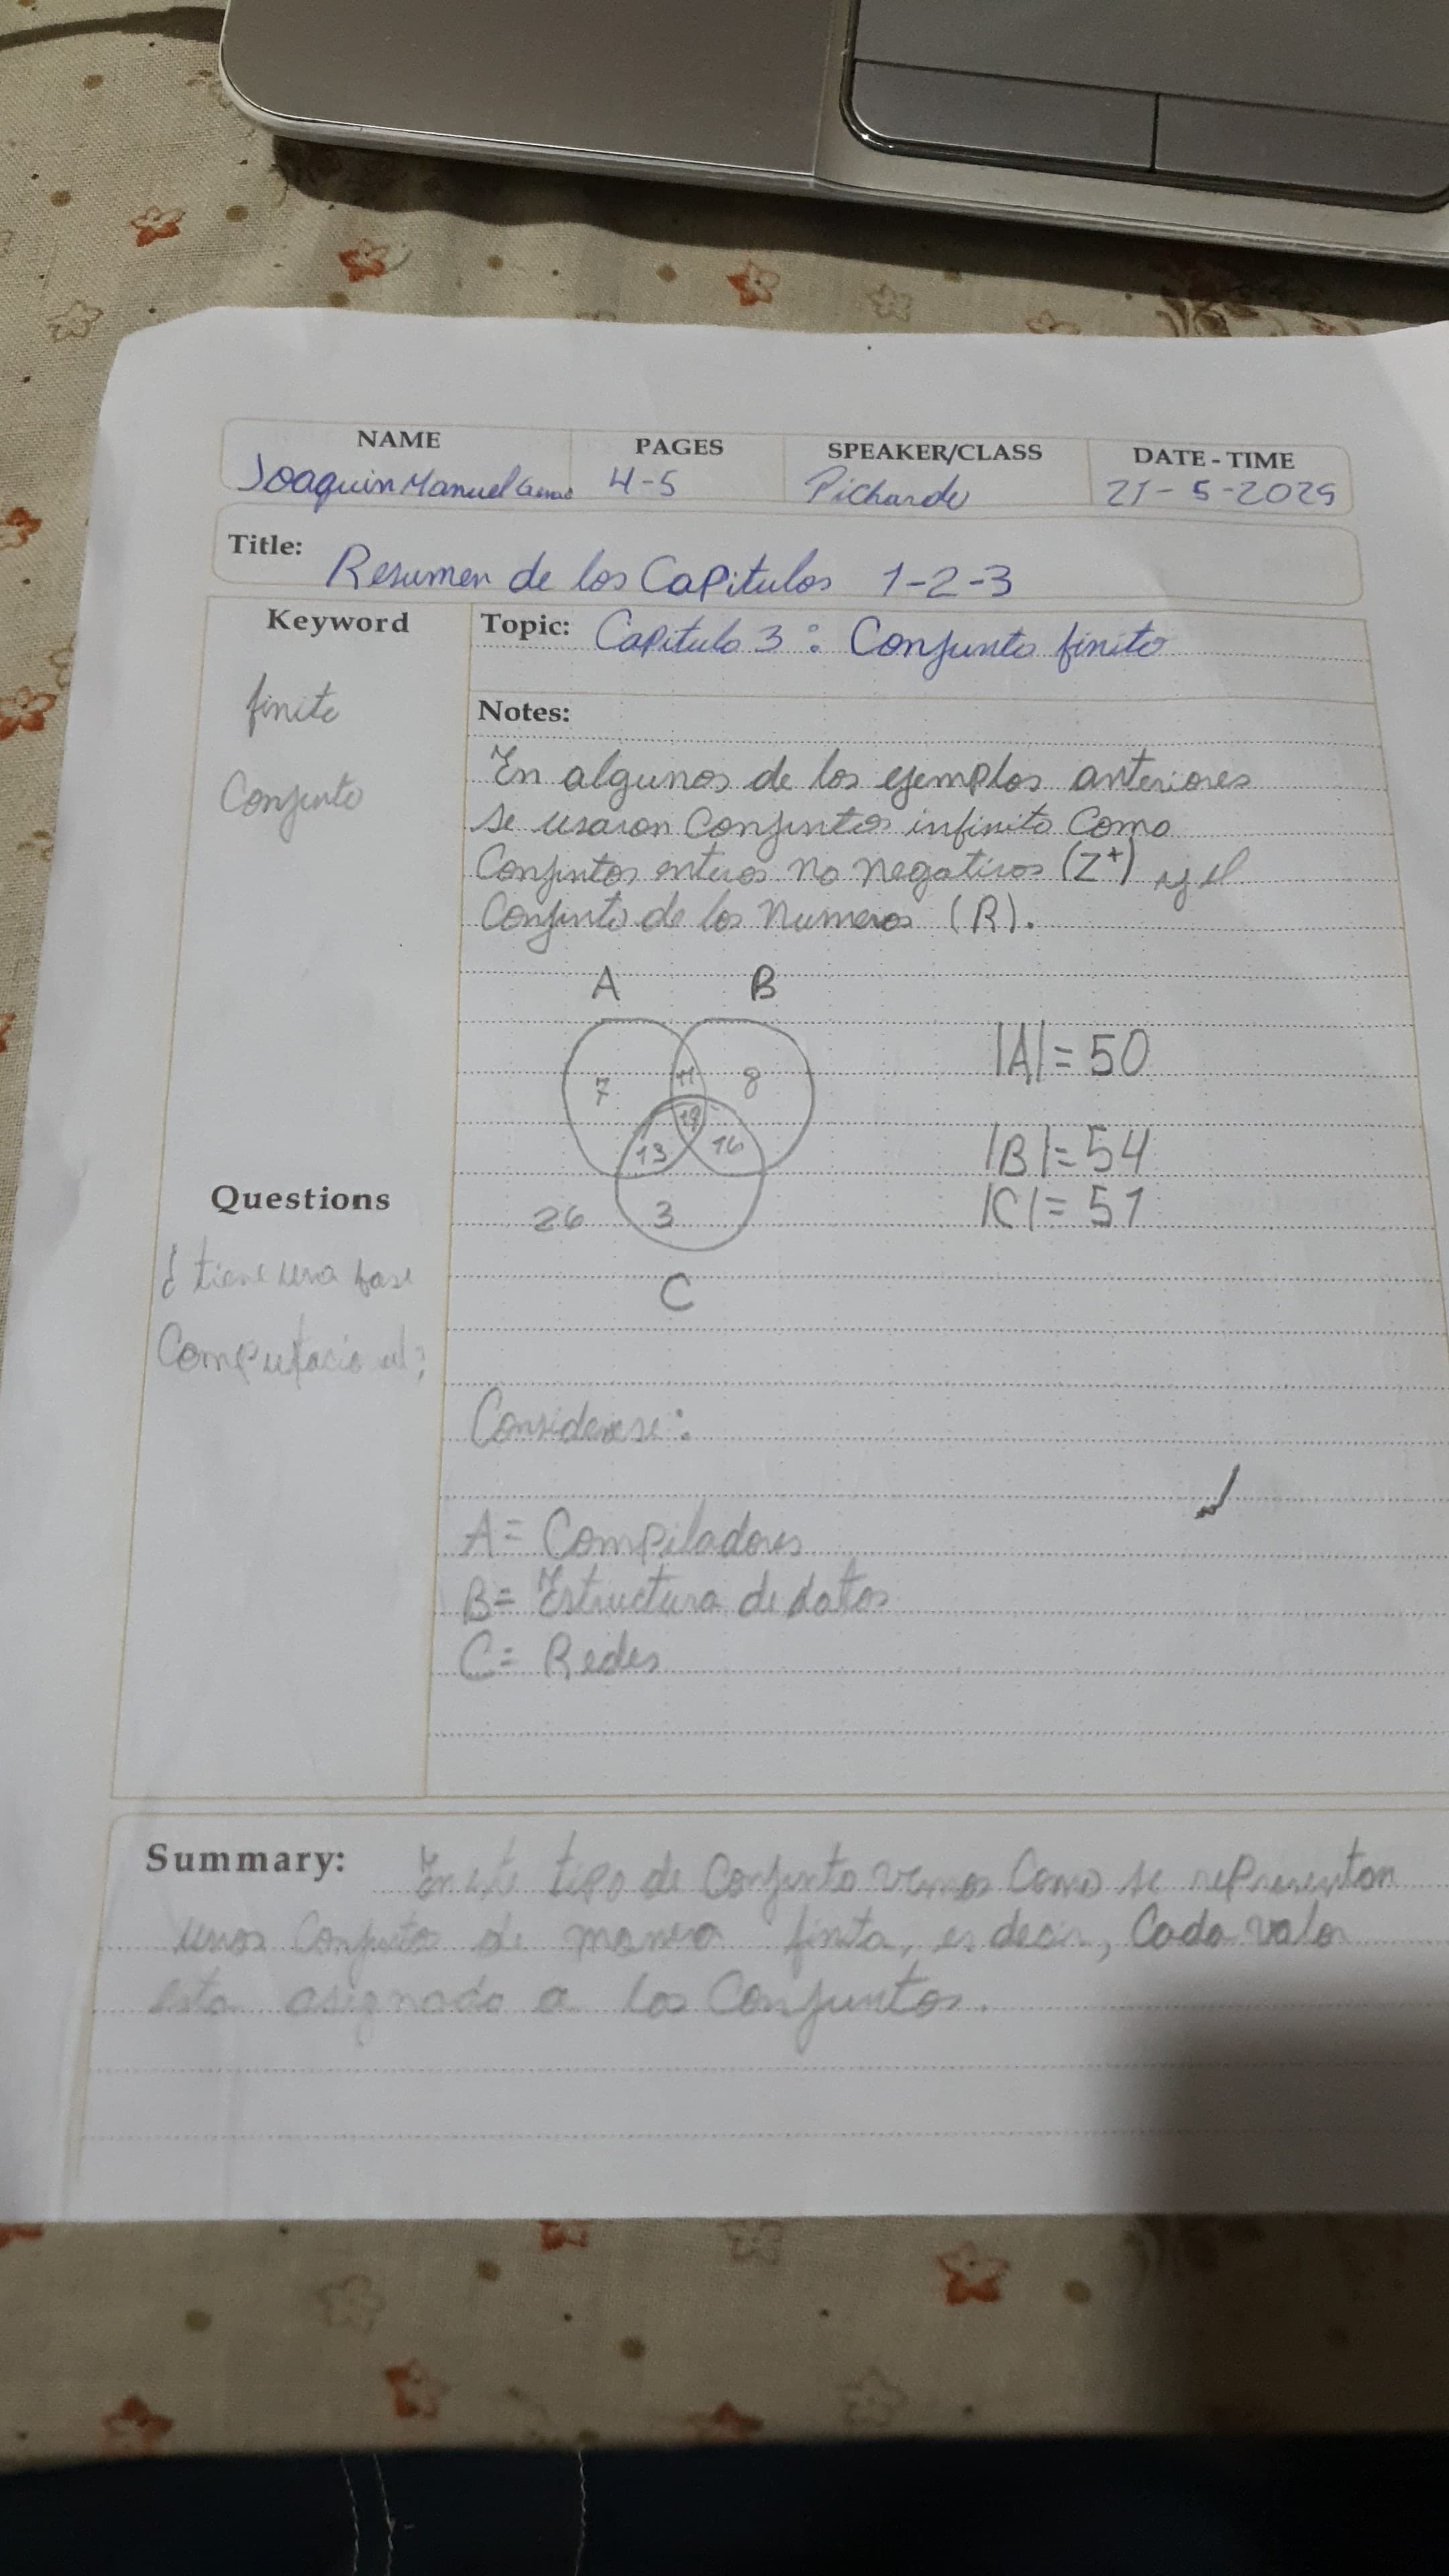 NAME PAGES SPEAKER/CLASS DATE - TIME
Joaquin Manuel 4-5 Pichardo 21-5-2025
Title: Resumen de los Capitulos 1-2-3
Keyword
finito
Conjunto
Topic: Capitulo 3: Conjunto finito
Notes:
En algunos de los ejemplos anteriores
se usaron Conjuntos infinito Como
Conjuntos enteros no negativos (Z+) y el
Conjunto de los Numeros (R).
A B
7 11 8
19
13 16
26 3
C
|A|= 50
|B|= 54
|C|= 51
Questions
¿ tiene una base
Computacional?
Considerese:
A= Compiladores
B= Estructura de datos
C= Redes
Summary: En este tipo de Conjunto vemos Como se representan
unos Conjuntos de manera finita, es decir, Cada valor
esta asignado a los Conjuntos.